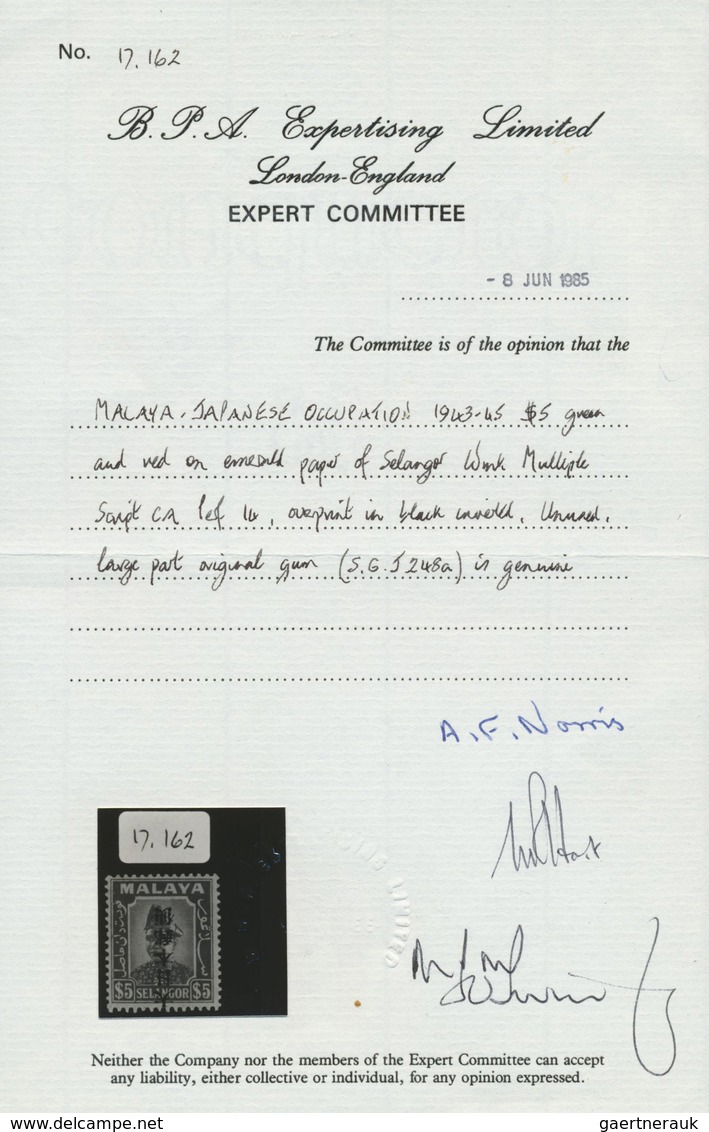 No. 17,162
B. P. A. Expertising Limited
London-England
EXPERT COMMITTEE
- 8 JUN 1985
The Committee is of the opinion that the
MALAYA. JAPANESE OCCUPATION 1943-45 $5 green
and red on emerald paper of Selangor Wmk Multiple
Script CA Perf 14, overprint in black inverted. Unused,
large part original gum (S.G. J248a) is genuine
A. F. Norris
17,162
MALAYA
$5 SELANGOR $5
LIMITED
Neither the Company nor the members of the Expert Committee can accept
any liability, either collective or individual, for any opinion expressed.
www.delcampe.net
gaertnerauk